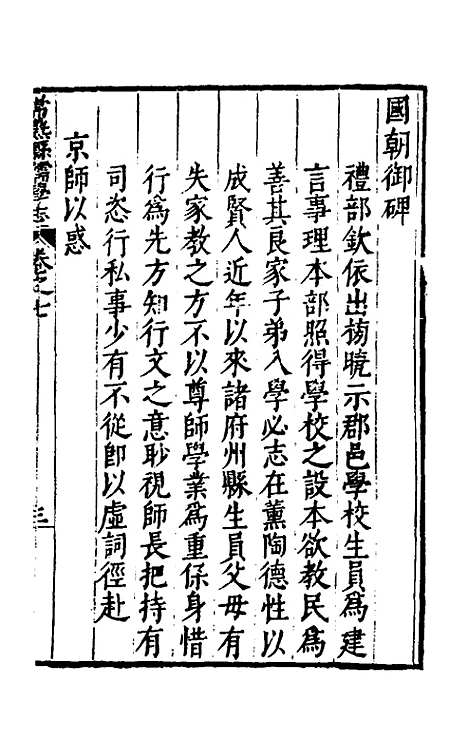 國朝御碑
禮部欽依出榜曉示郡邑學校生員爲建
言事理本部照得學校之設本欲教民爲
善其良家子弟入學必志在薰陶德性以
成賢人近年以來諸府州縣生員父母有
失家教之方不以尊師學業爲重保身惜
行爲先方知行文之意眇視師長把持有
司恣行私事少有不從卽以虛詞徑赴
京師以惑
常熟縣儒學志 卷之七 三